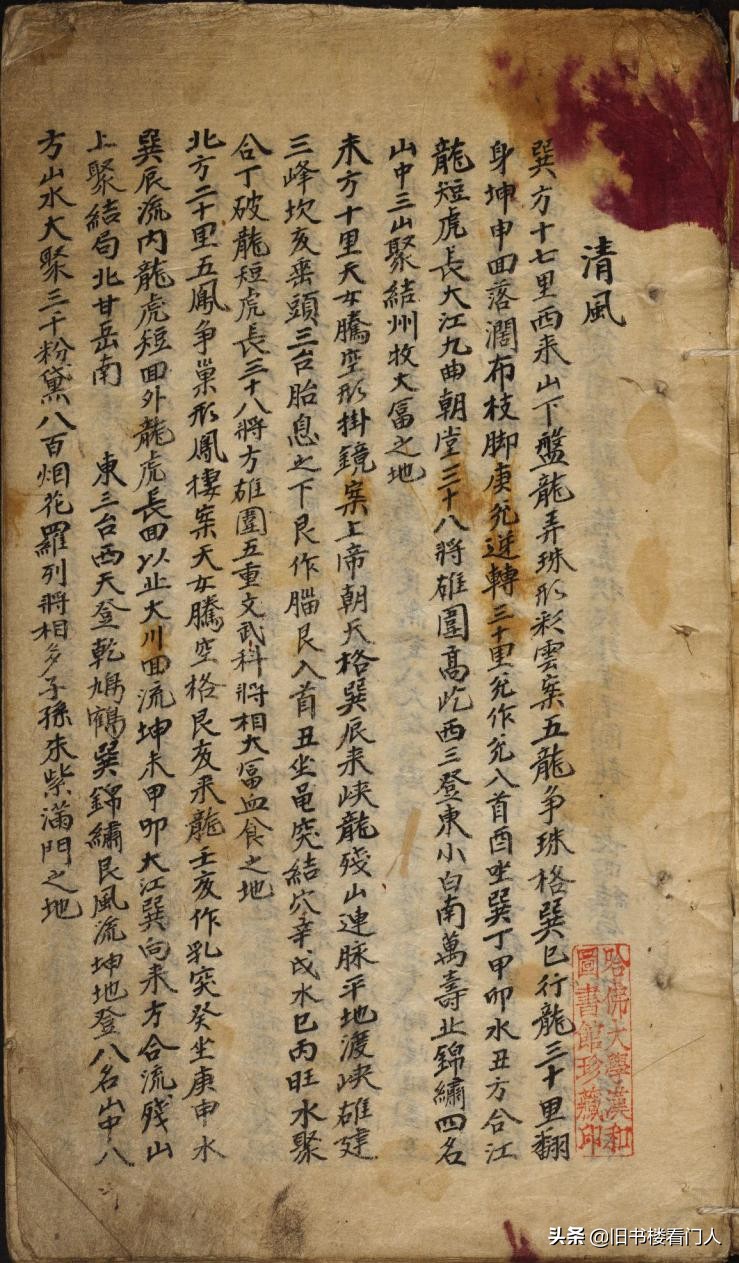 清風
巽方十七里西来山下盤龍弄珠形彩雲案五龍争珠格巽巳行龍三十里翻
身坤申回落濶布枝脚庚兊逆轉三十里兊作兊入首酉坐巽丁甲卯水丑方合江
龍短虎長大江九曲朝堂三十八將雄圍高屹西三登東小白南萬壽北錦繡四名
山中三山聚結州牧大冨之地
未方十里天女騰空形掛鏡案上帝朝天格巽辰来峽龍殘山連脉平地渡峽雄建
三峰坎亥垂頭三台胎息之下艮作腦艮入首丑坐黾突結穴辛戌水巳丙旺水聚
合丁破龍短虎長三十八將方雄圍五重文武科將相大冨血食之地
北方二十里五鳳争巢形鳳棲案天女騰空格艮亥来龍壬亥作乳突癸坐庚申水
巽辰流内龍虎短回外龍虎長回以止大川回流坤未甲卯大江巽向来方合流殘山
上聚結局北甘岳南 東三台西天登乾鳩鶴巽錦繡艮風流坤地登八名山中八
方山水大聚三千粉黛八百烟花羅列將相多子孫朱紫滿門之地
哈佛大學漢和
圖書館珍藏印
头条 @旧书楼看门人